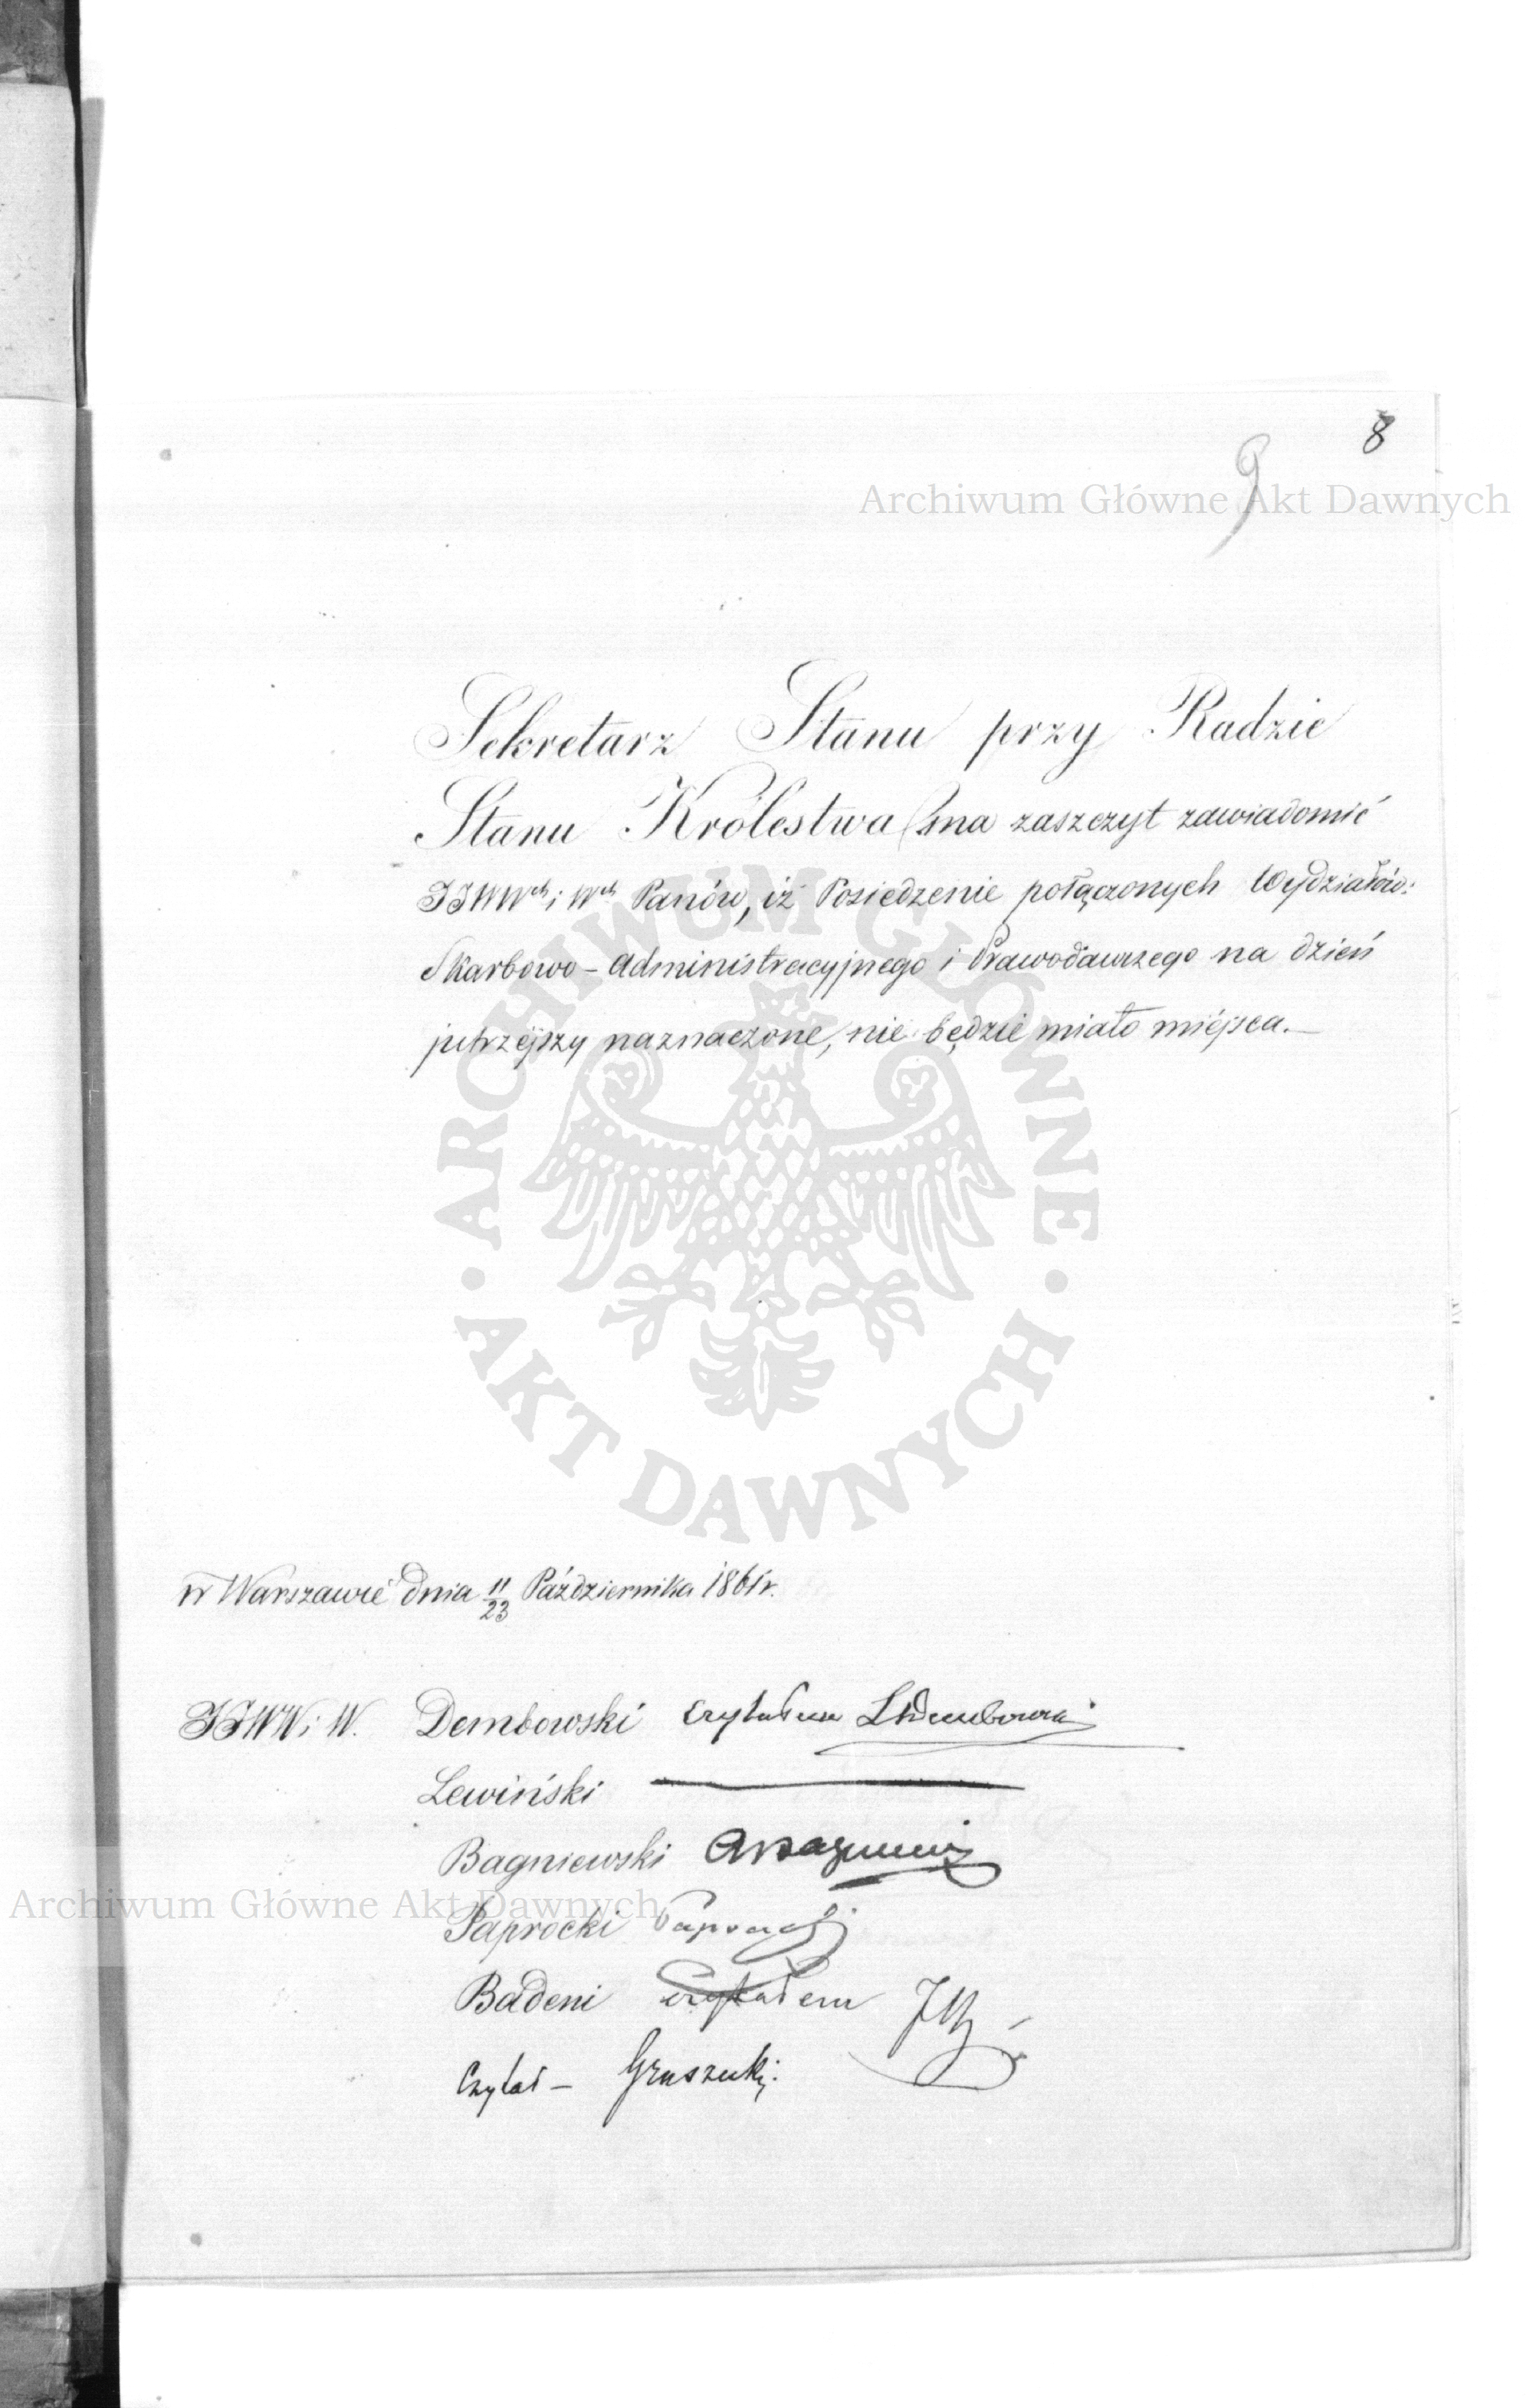 8
9
Archiwum Główne Akt Dawnych
Sekretarz Stanu przy Radzie
Stanu Królestwa ma zaszczyt zawiadomić
JJWWch i Wch Panów, iż Posiedzenie połączonych Wydziałów:
Skarbowo-Administracyjnego i Prawodawczego na dzień
jutrzejszy naznaczone, nie będzie miało miejsca.—
ARCHIWUM GŁÓWNE
AKT DAWNYCH
w Warszawie dnia 11/23 Października 1861 r.
JJWW i W. Dembowski czytałem LDembowski
Lewiński
Bagniewski
Archiwum Główne Akt Dawnych
Paprocki Paprocki
Badeni czytałem
Czytał — Gruszecki.